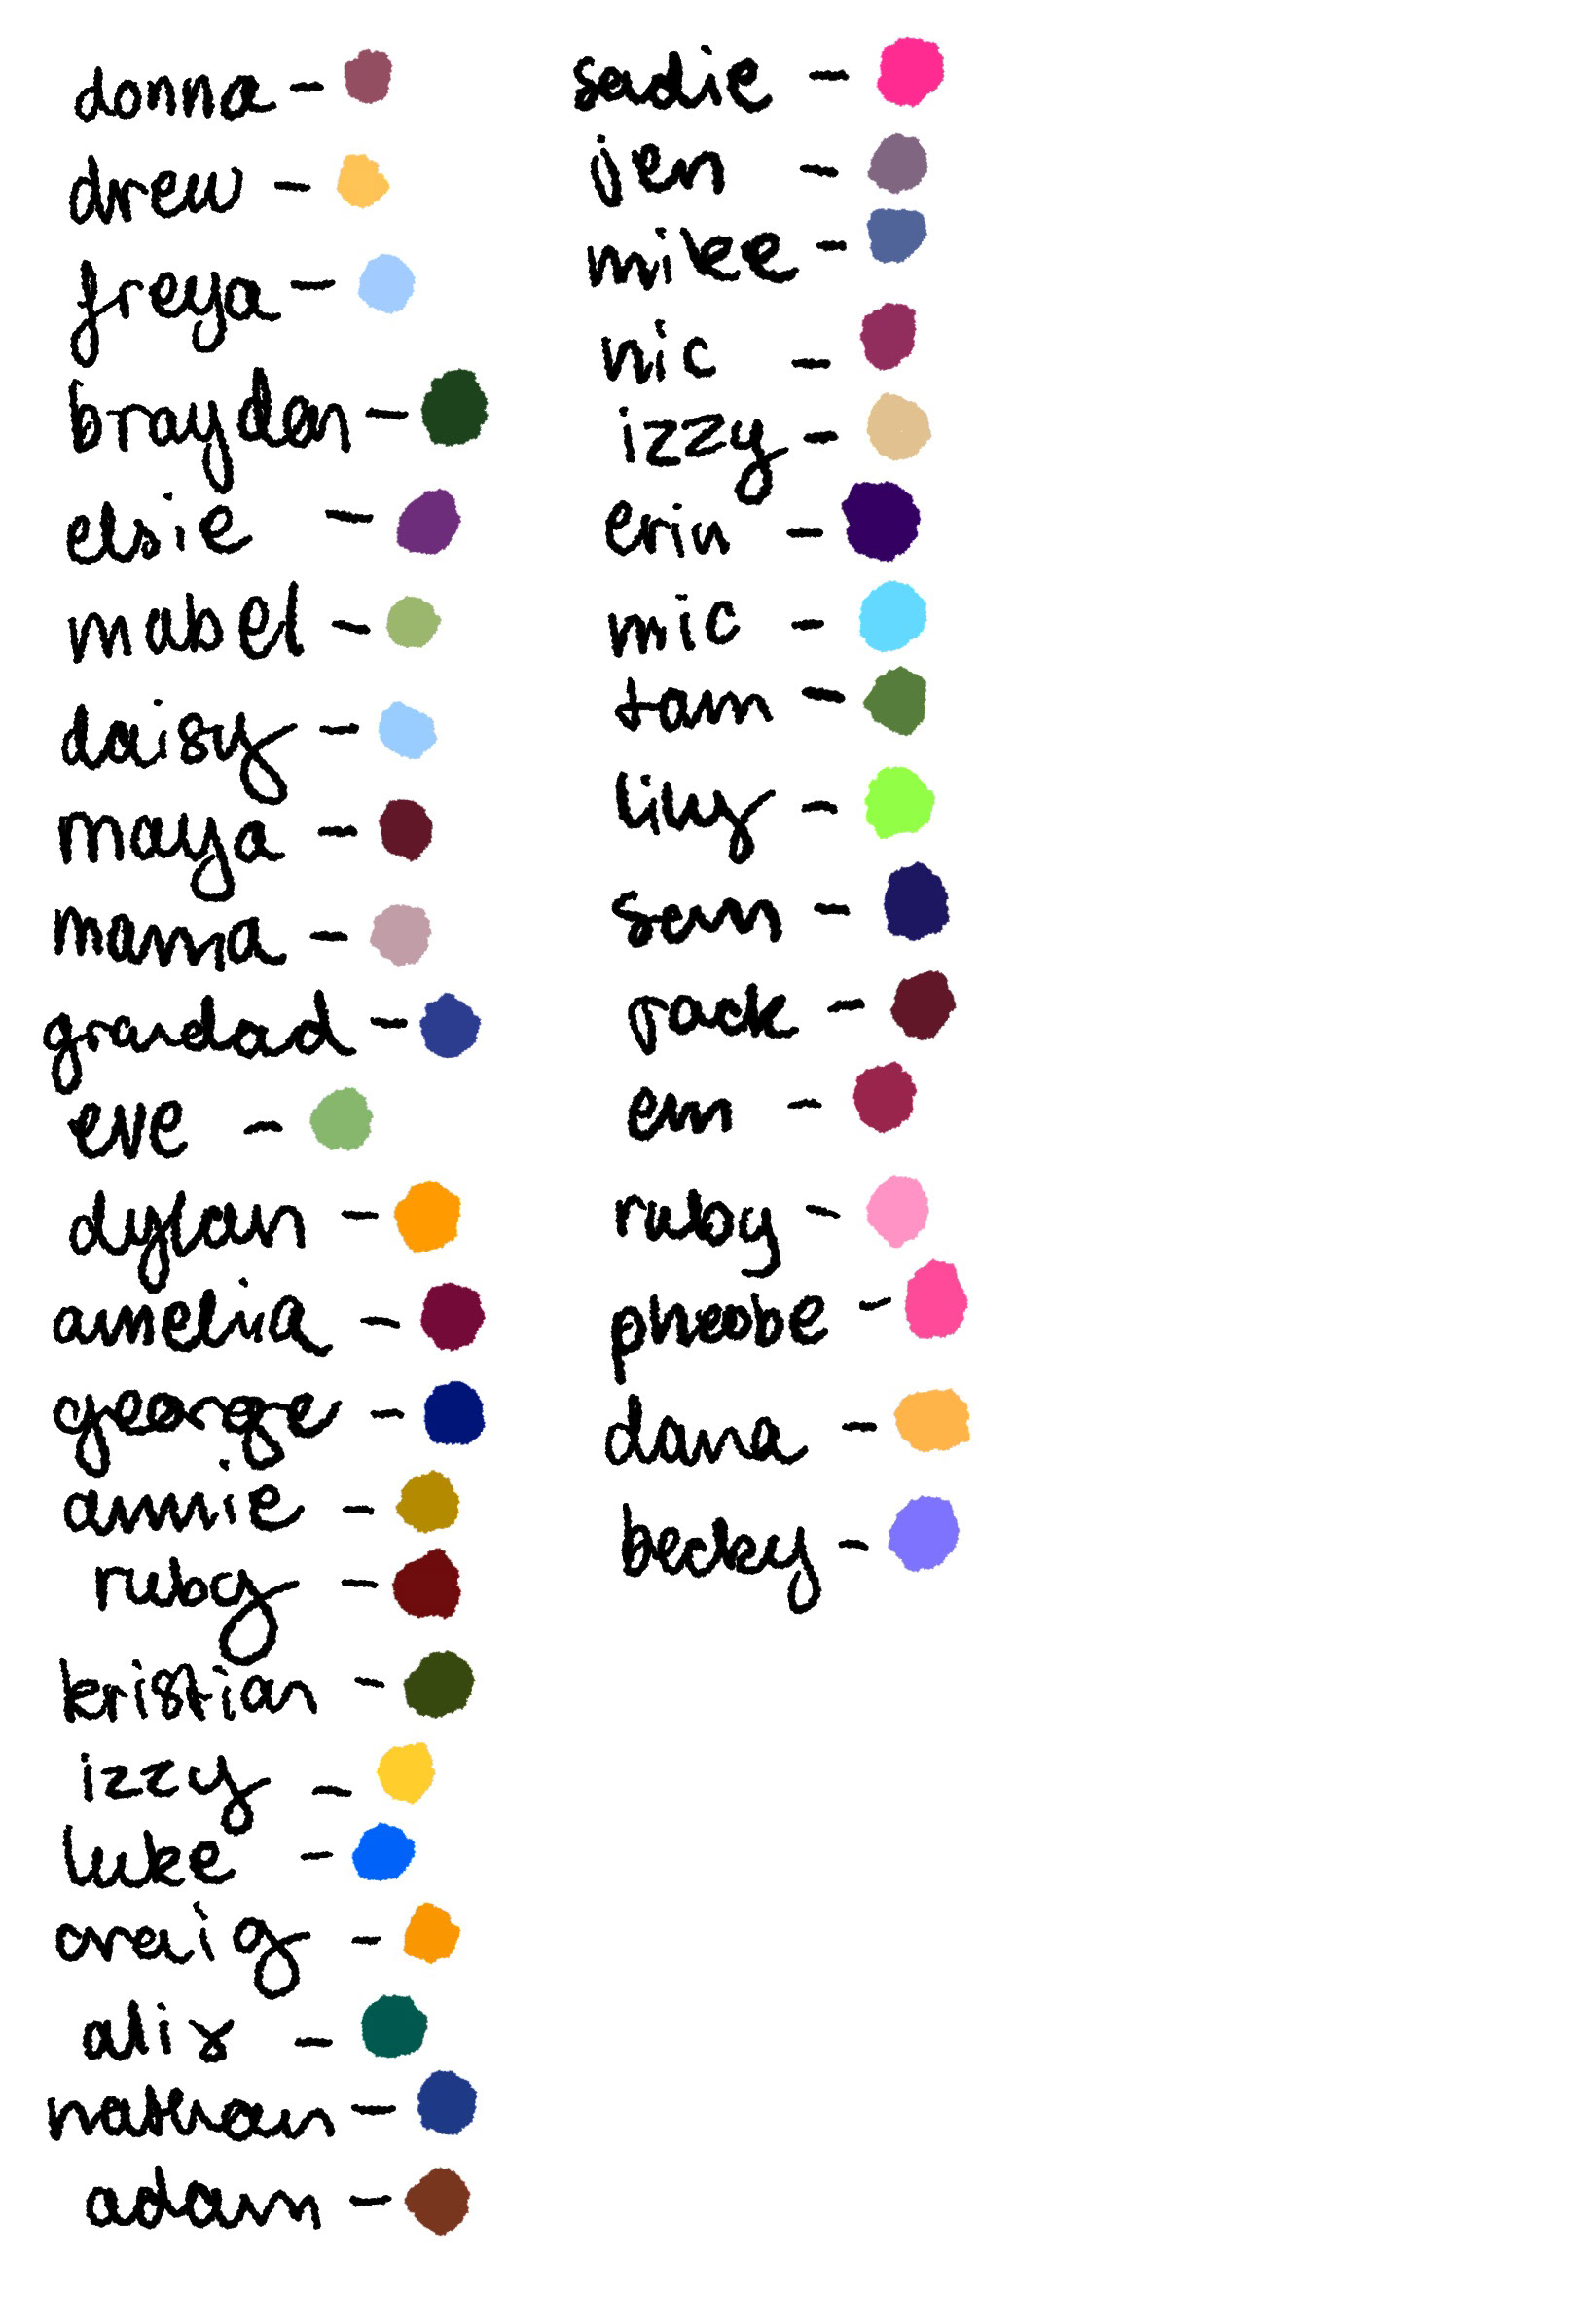 donna -
drew -
freya -
brayden -
elsie -
mabel -
daisy -
maya -
mama -
grandad -
eve -
dylan -
amelia -
george -
annie -
ruby -
kristian -
izzy -
luke -
craig -
alix -
nathan -
adam -
sadie -
jen -
mikee -
nic -
izzy -
erin -
mic -
tam -
lily -
sam -
em -
ruby -
pheobe -
dana -
becky -